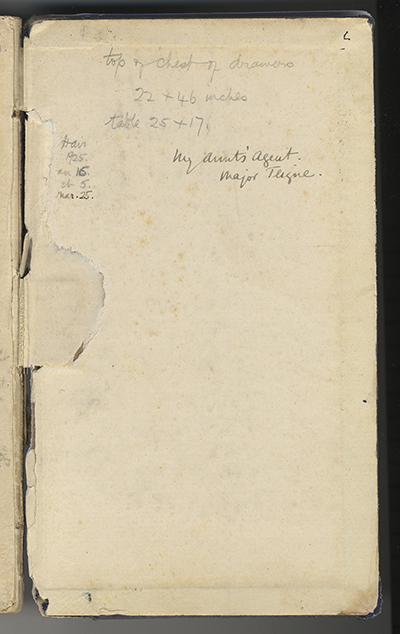 top of chest of drawers
22 + 46 inches
table 25 + 17.
Hair
1925.
16.
5.
Mar. 25.
My Aunt's Agent.
Major Teigne.